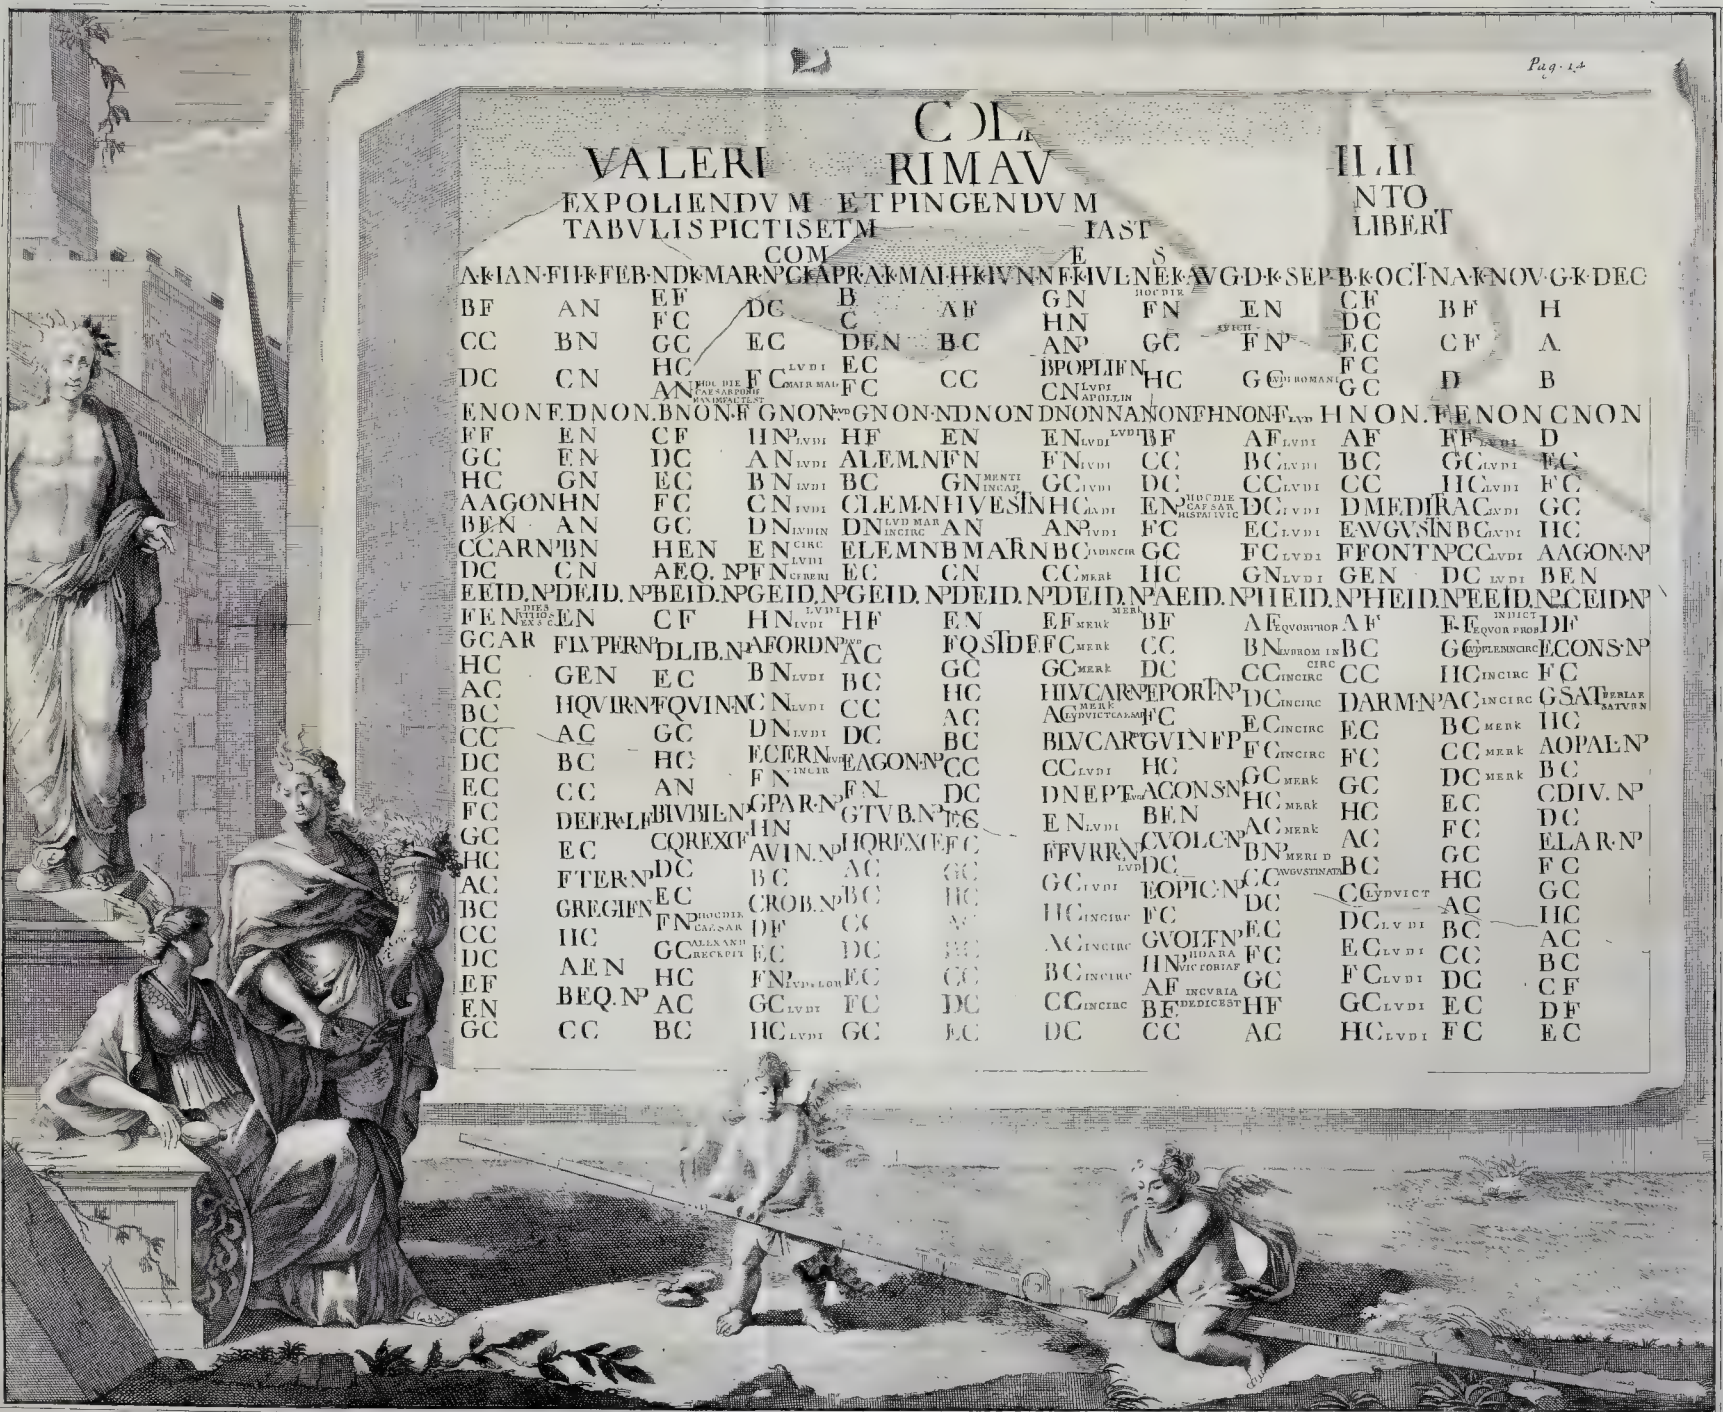 Pag. 14
COL
VALERI RIMAV ILII
EXPOLIENDVM ET PINGENDVM NTO
TABVLIS PICTIS ET M IAST LIBERT
COM E S
A·K·IAN·F III·K·FEB·N D·K·MAR·NP C·K·APR· A·K·MAI· H·K·IVN·N F·K·IVL·N E·K·AVG· D·K·SEP· B·K·OCT·N A·K·NOV· G·K·DEC
EF B GN HOC DIE CF
BF AN DC AF FN EN BF H
FC C HN DC
CC BN GC EC DEN BC ANP GC FNP EC CF A
HC LVDI EC BPOPLIFN FC
DC CN FC MATR MAG CC HC GC LVDI ROMANI D B
AN HOC DIE CAESAR PONTIF MAXIM FACT EST FC CN LVDI APOLLIN GC
ENON F DNON. BNON·F GNON· LVD GNON·N DNON DNONN ANONF HNON·F LVD HNON.F ENON CNON
FF EN CF HNP LVDI HF EN EN LVDI LVDI BF AF LVDI AF FF LVDI D
GC EN DC AN LVDI ALEM.N FN FN LVDI CC BC LVDI BC GC LVDI EC
HC GN EC BN LVDI BC GN MENTI IN CAP GC LVDI DC CC LVDI CC HC LVDI FC
AAGON HN FC CN LVDI CLEM·N HVESTN HC LVDI ENP HOC DIE CAESAR HISPAI VIC DC LVDI DMEDITR AC LVDI GC
BEN AN GC DN LVDI N DN LVD MAR IN CIRC AN ANP LVDI FC EC LVDI EAVGVSTN BC LVDI HC
CCARNP BN HEN EN CIRC ELEMN BMATRN BC LVDI N CIR GC FC LVDI FFONTNP CC LVDI AAGON·NP
DC CN AEQ.NP FN LVDI CERERI EC CN CC MERK HC GN LVDI GEN DC LVDI BEN
EEID.NP DEID.NP BEID.NP GEID.NP GEID.NP DEID.NP DEID.NP AEID.NP HEID.NP HEID.NP EEID.NP CEID·NP
FEN DIES VITIOS EX S C EN CF HN LVDI LVDI HF EN EF MERK MERK BF AF EQVOR PROB AF FF EQVOR PROB INDICT DF
GCAR FLVPERNP DLIB.NP AFORDNP LVD AC FQSTDF FC MERK CC BN LVD ROM IN BC GC LVD PLEM N CIRC ECONS·NP
HC GEN EC BN LVDI BC GC GC MERK DC CC CIRC IN CIRC CC HC IN CIRC FC
AC HQVIRNP FQVINN CN LVDI CC HC HLVCARNP EPORT·NP DC IN CIRC DARM·NP AC IN CIRC GSAT FERIAE SATVRN
BC AC GC DN LVDI DC AC AC MERK LVD VICT CAESAR FC EC IN CIRC EC BC MERK HC
CC BC HC ECERN LVD IN CIR EAGON·NP BC BLVCAR GVINFP FC IN CIRC FC CC MERK AOPAL·NP
DC CC AN FN FN CC CC LVDI HC GC MERK GC DC MERK BC
EC DFERALF BIVBILNP GPAR·NP GTVB.NP DC DNEPT LVDI ACONS·N HC MERK HC EC CDIV.NP
FC EC CQREXCF HN HQREXCF EC EN LVDI BEN AC MERK AC FC DC
GC FTER·NP DC AVIN.NP AC FC FFVRRN LVD CVOLC·NP BNP MERID BC GC ELAR·NP
HC GREGIFN EC BC BC GC GC LVDI DC CC AVGVSTI NATA CC LVD VICT HC FC
AC HC FNP HOC DIE CAESAR CROB.NP CC HC HC IN CIRC EOPIC·NP DC DC LVDI AC GC
BC AEN GC ALEXAND RECEPIT DF DC AC AC IN CIRC FC EC EC LVDI BC HC
CC BEQ.NP HC EC EC BC BC IN CIRC GVOLT·NP FC FC LVDI CC AC
DC CC AC FNP LVDI FLOR FC CC CC IN CIRC HNP HD ARA VICTORIAE GC GC LVDI DC BC
EF BC GC LVDI GC DC DC AF IN CVRIA HF HC LVDI EC CF
EN HC LVDI EC BF DEDIC EST AC FC DF
GC CC EC